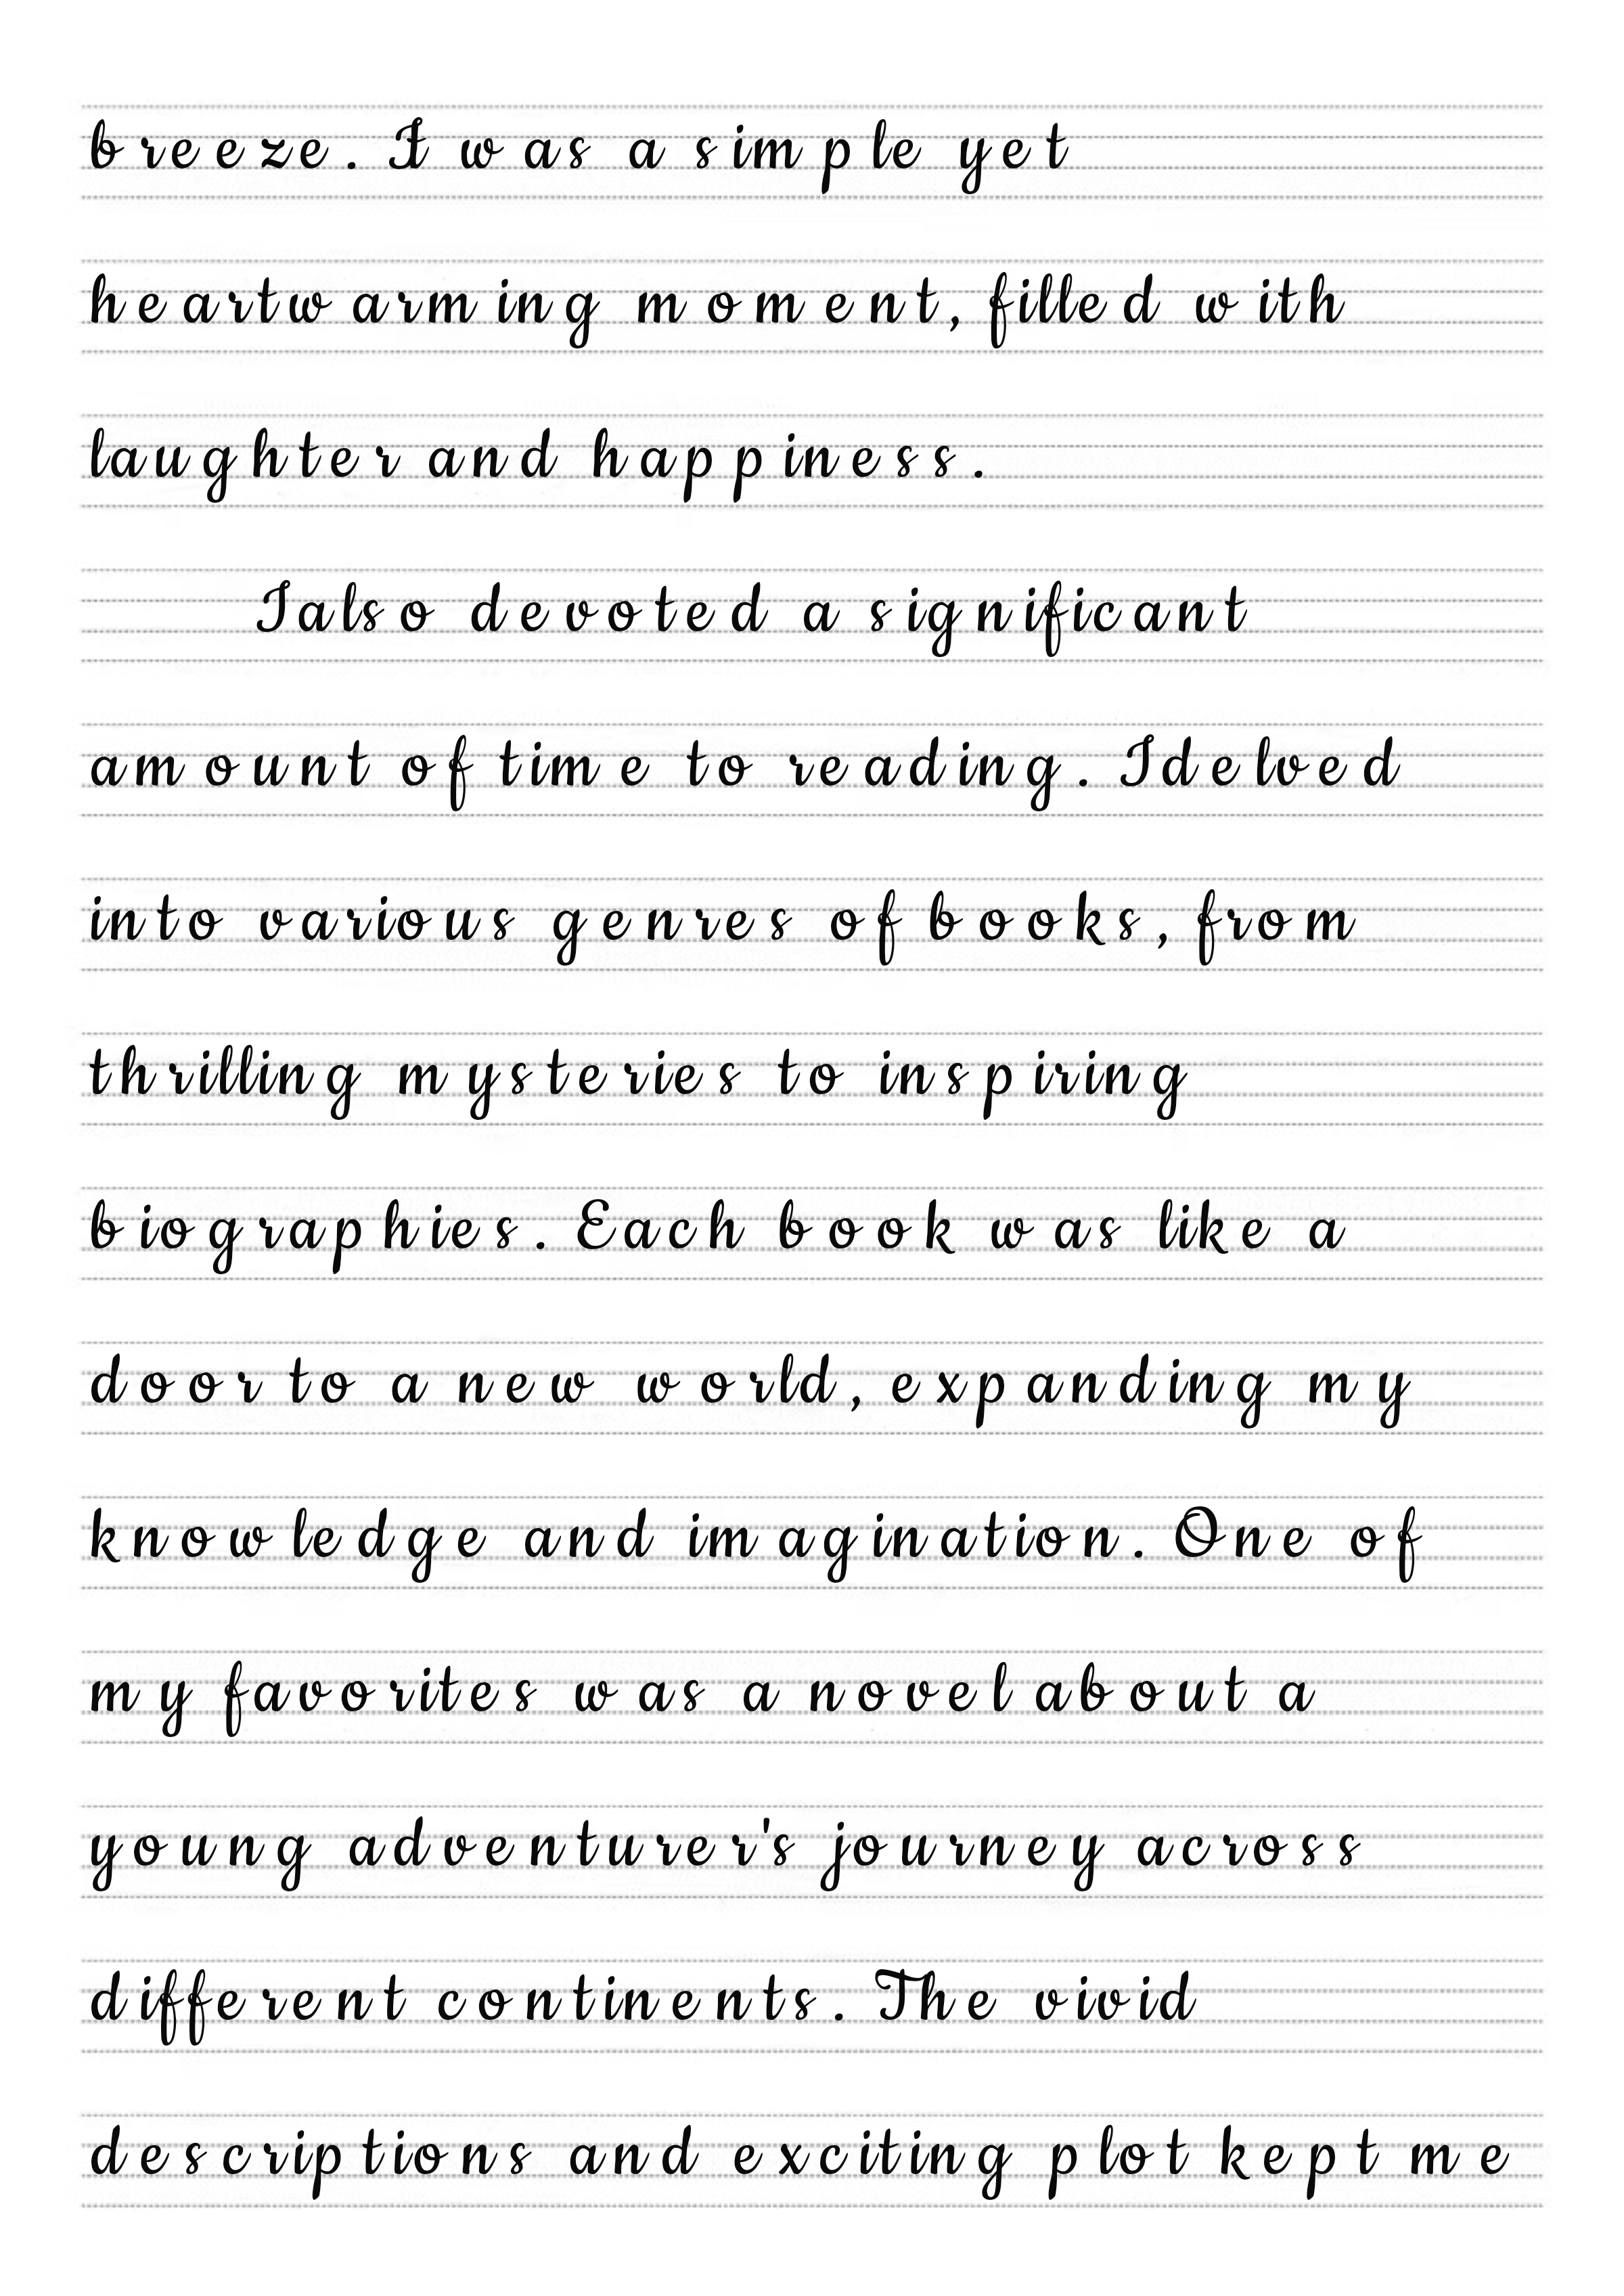 breeze. It was a simple yet
heartwarming moment, filled with
laughter and happiness.
I also devoted a significant
amount of time to reading. I delved
into various genres of books, from
thrilling mysteries to inspiring
biographies. Each book was like a
door to a new world, expanding my
knowledge and imagination. One of
my favorites was a novel about a
young adventurer's journey across
different continents. The vivid
descriptions and exciting plot kept me